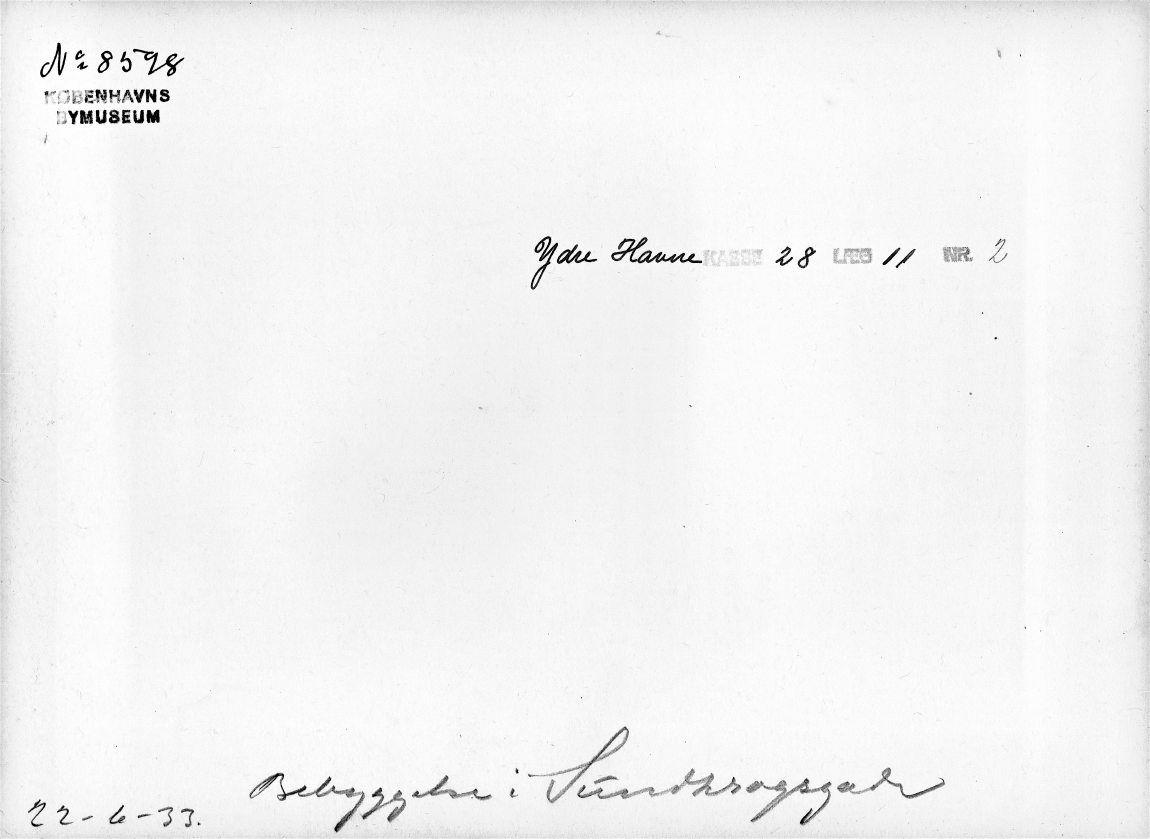 No 8598
KØBENHAVNS
BYMUSEUM
Ydre Havne KASSE 28 LÆG 11 NR. 2
Bebyggelse i Sundkrogsgade
22-6-33.